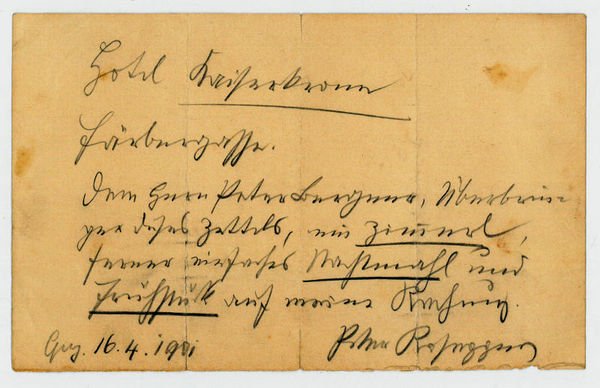 Hotel Kaiserkrone
Färbergasse.
Dem Herrn Peter Bergner, Überbrin-
ger dieses Zettels, ein Zimmerl,
ferner einfaches Nachtmahl und
Frühstück auf meine Rechnung.
Graz, 16.4.1901 Peter Rosegger